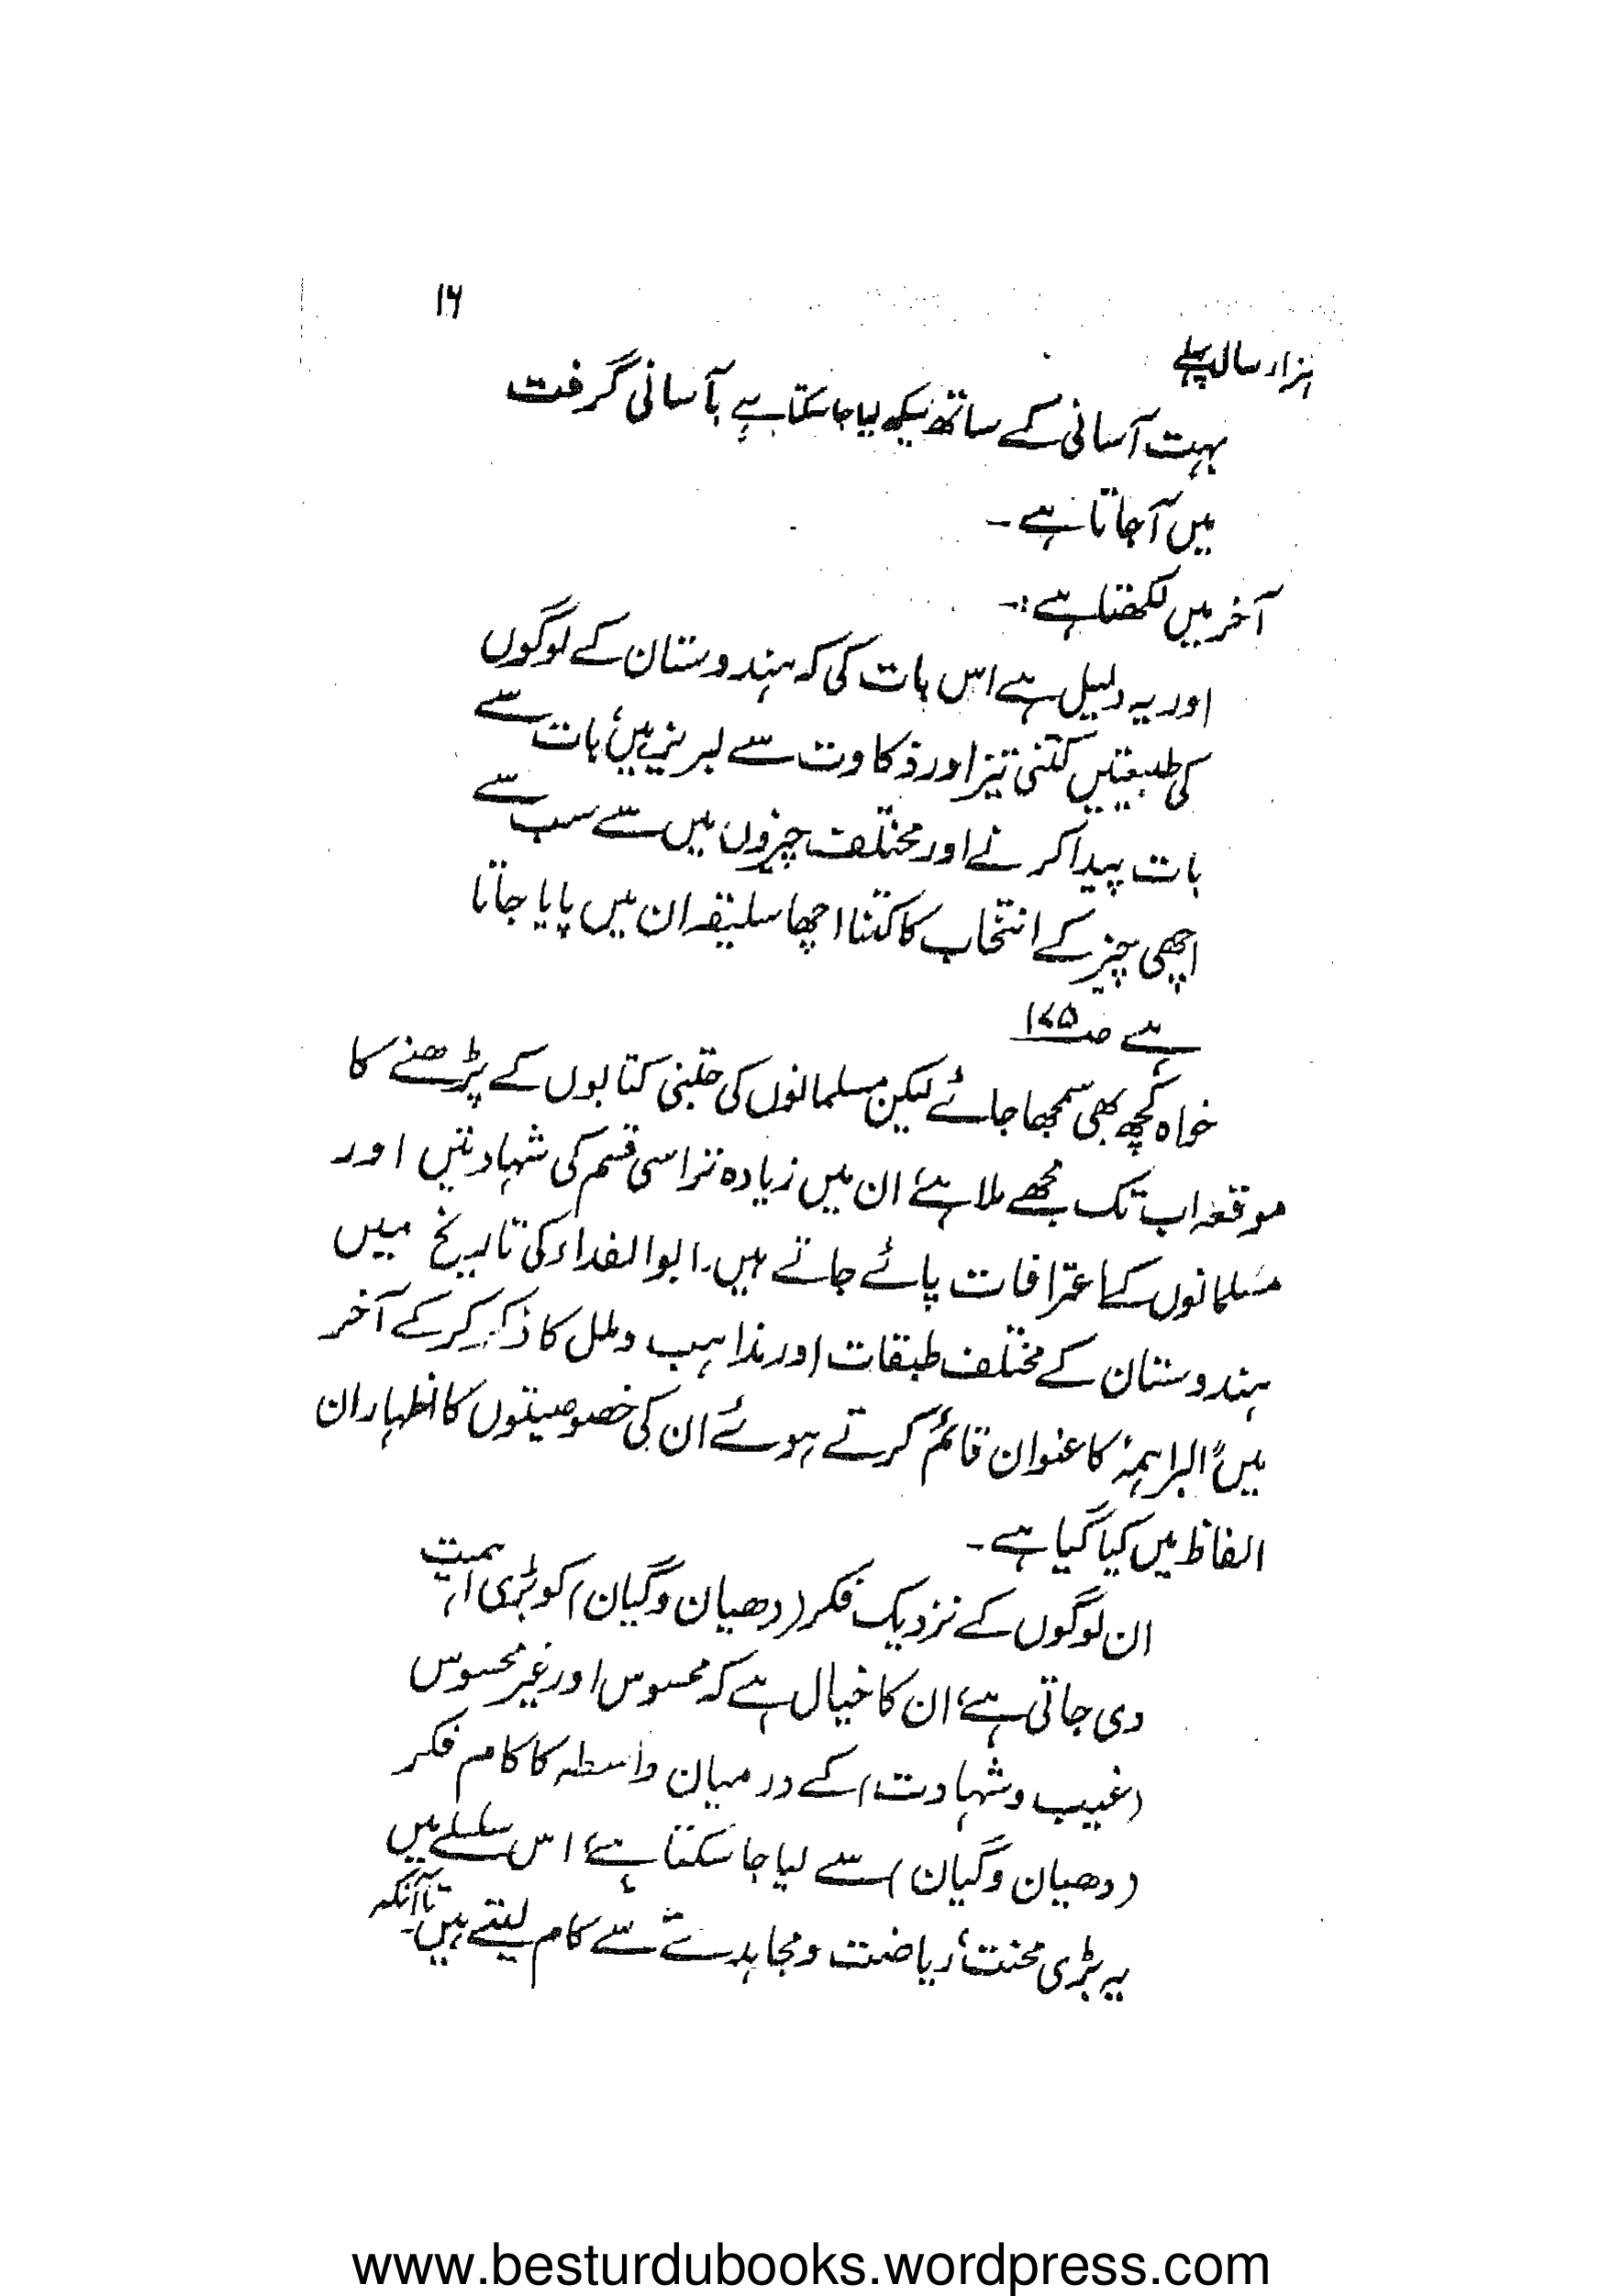 ۱۶
ہزار سال پہلے
بہت آسانی کے ساتھ سیکھ لیا جا سکتا ہے بآسانی گرفت
میں آجاتا ہے ۔
آخر میں لکھتا ہے :۔
اور یہ دلیل ہے اس بات کی کہ ہندوستان کے لوگوں
کی طبیعتیں کتنی تیز اور ذکاوت سے لبریز ہیں، بات سے
بات پیدا کرنے اور مختلف چیزوں میں سے سب سے
اچھی چیز کے انتخاب کا کتنا اچھا سلیقہ ان میں پایا جاتا
ہے صـ ۱۷۵
خواہ کچھ بھی سمجھا جائے لیکن مسلمانوں کی جتنی کتابوں کے پڑھنے کا
موقعہ اب تک مجھے ملا ہے، ان میں زیادہ تر اسی قسم کی شہادتیں اور
مسلمانوں کے اعترافات پائے جاتے ہیں۔ ابوالفداء کی تاریخ میں
ہندوستان کے مختلف طبقات اور مذاہب و ملل کا ذکر کرکے آخر
میں "البراہمہ" کا عنوان قائم کرتے ہوئے ان کی خصوصیتوں کا اظہار ان
الفاظ میں کیا گیا ہے ۔
ان لوگوں کے نزدیک فکر (دھیان و گیان) کو بڑی اہمیت
دی جاتی ہے، ان کا خیال ہے کہ محسوس اور غیر محسوس
(غیب و شہادت) کے درمیان واسطہ کا کام فکر
(دھیان و گیان) سے لیا جا سکتا ہے، اس سلسلے میں
یہ بڑی محنت، ریاضت و مجاہدے سے کام لیتے ہیں۔ تا آنکہ
www.besturdubooks.wordpress.com